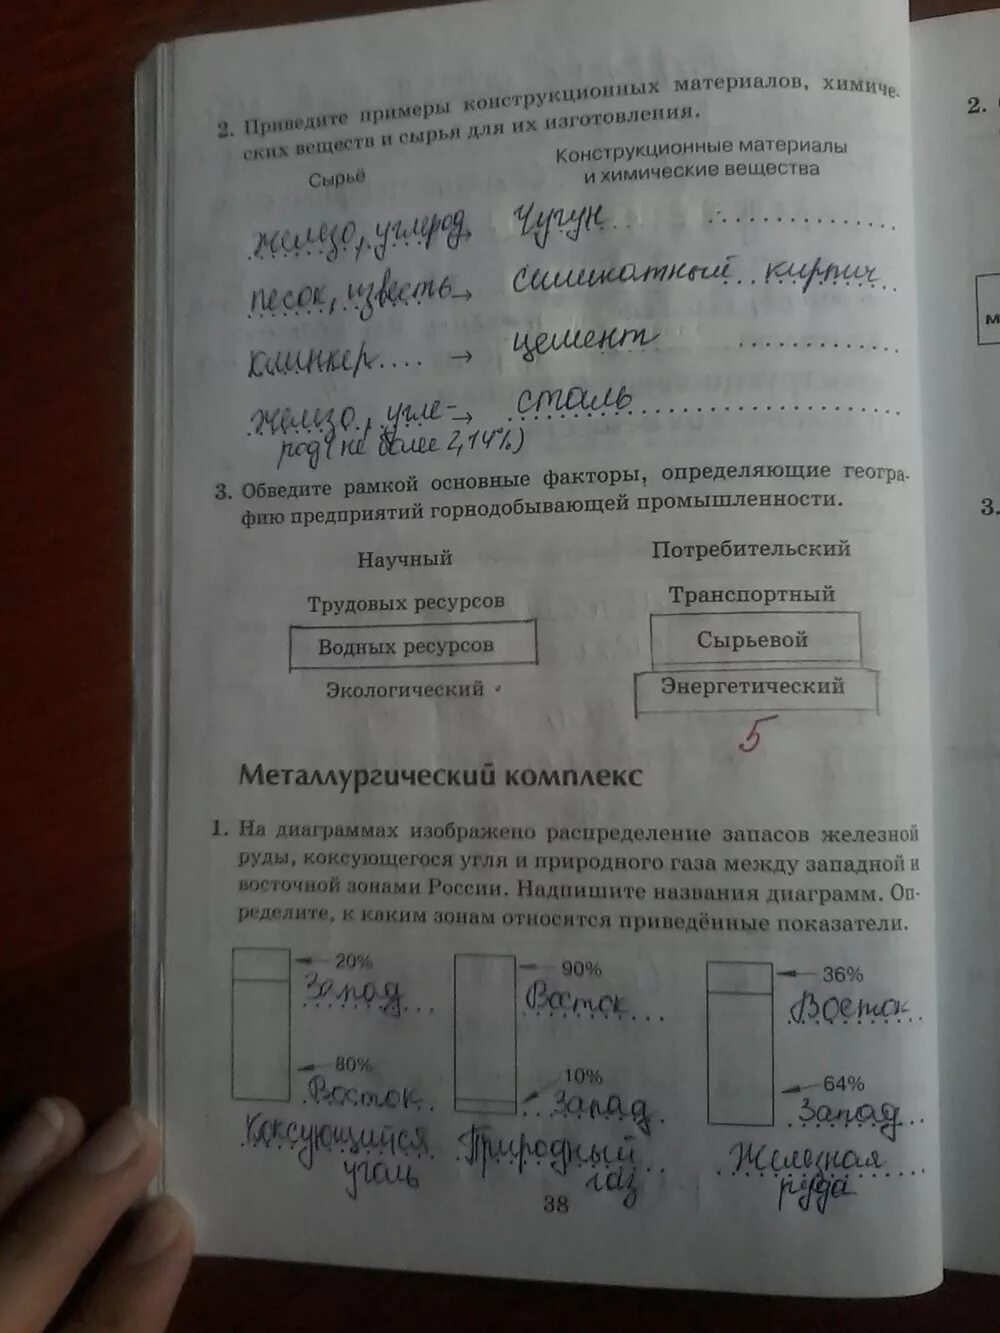 2. Приведите примеры конструкционных материалов, химиче-
ских веществ и сырья для их изготовления.
Сырьё
Конструкционные материалы
и химические вещества
железо, углерод → Чугун
песок, известь → силикатный кирпич
клинкер → цемент
железо, угле- → сталь
род (не более 2,14%)
3. Обведите рамкой основные факторы, определяющие геогра-
фию предприятий горнодобывающей промышленности.
Научный
Потребительский
Трудовых ресурсов
Транспортный
Водных ресурсов
Сырьевой
Экологический
Энергетический
5
Металлургический комплекс
1. На диаграммах изображено распределение запасов железной
руды, коксующегося угля и природного газа между западной и
восточной зонами России. Надпишите названия диаграмм. Оп-
ределите, к каким зонам относятся приведённые показатели.
20%
Запад
80%
Восток
Коксующийся
уголь
90%
Восток
10%
Запад
Природный
газ
36%
Восток
64%
Запад
Железная
руда
38
2.
м
3.